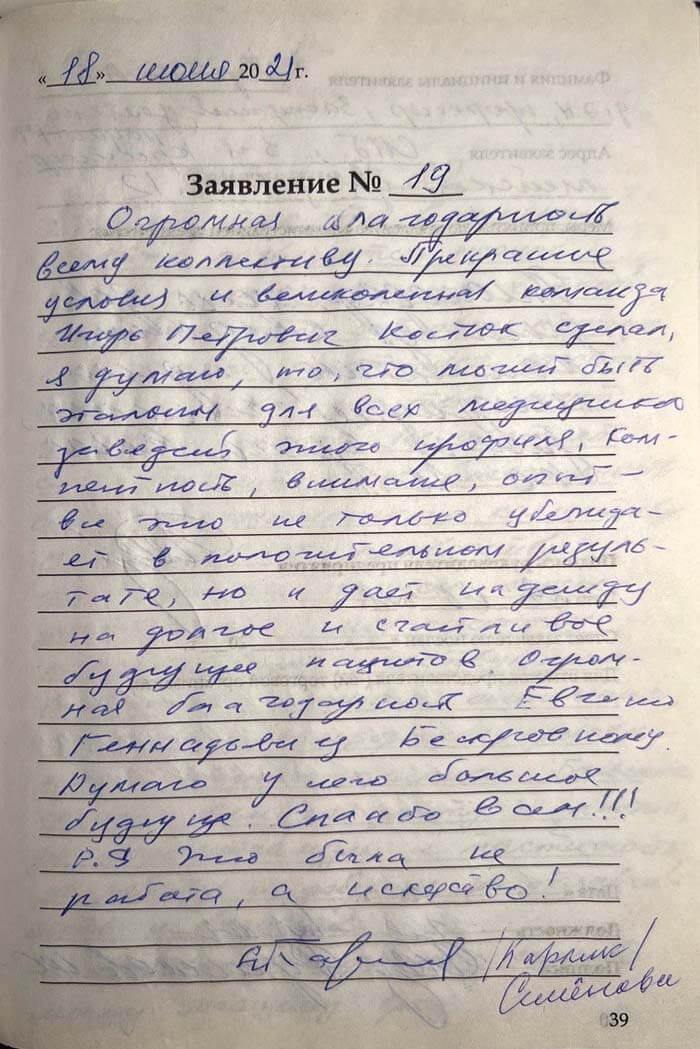 «18» июня 2021 г.
Заявление № 19
Огромная благодарность
всему коллективу. Прекрасные
условия и великолепная команда
Игорь Петрович Костюк сделал,
я думаю, то, что может быть
эталоном для всех медицинских
заведений этого профиля. Ком-
петентность, внимание, опыт –
все это не только убежда-
ет в положительном резуль-
тате, но и дает надежду
на долгое и счастливое
будущее пациентов. Огром-
ная благодарность Евгению
Геннадьевичу
Думаю у него большое
будущее. Спасибо Вам!!!
P.S это была не
работа, а искусство!
Семёнова
39